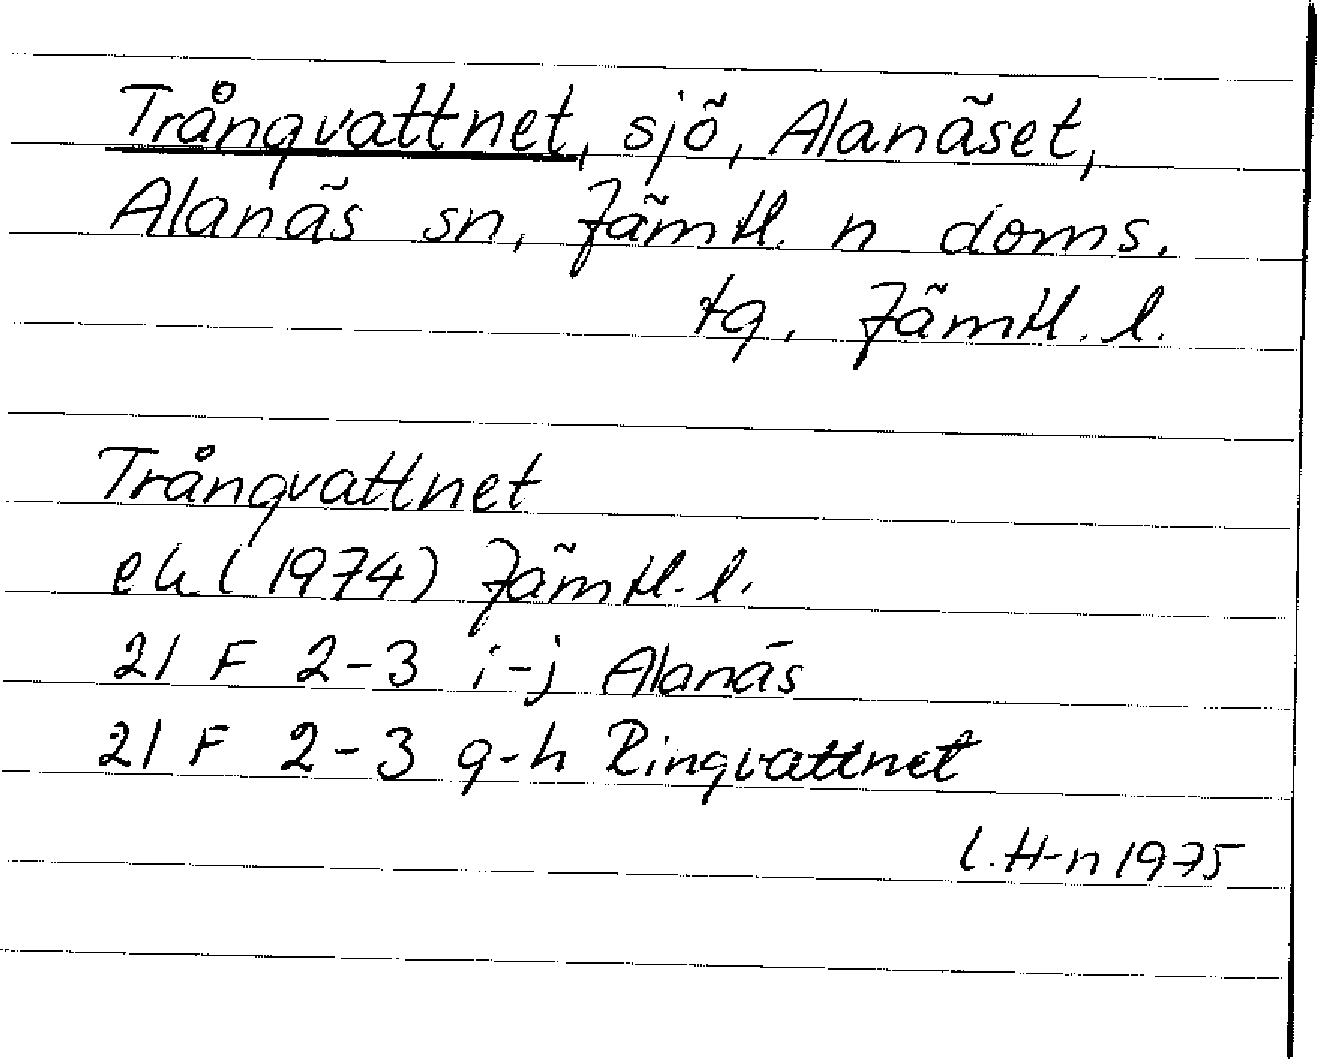 Trångvattnet, sjö, Alanäset,
Alanäs sn, Jämtl. n doms.
tg. Jämtl. l.
Trångvattnet
ek (1974) Jämtl. l.
21 F 2-3 i-j Alanäs
21 F 2-3 g-h Ringvattnet
l. H-n 1975